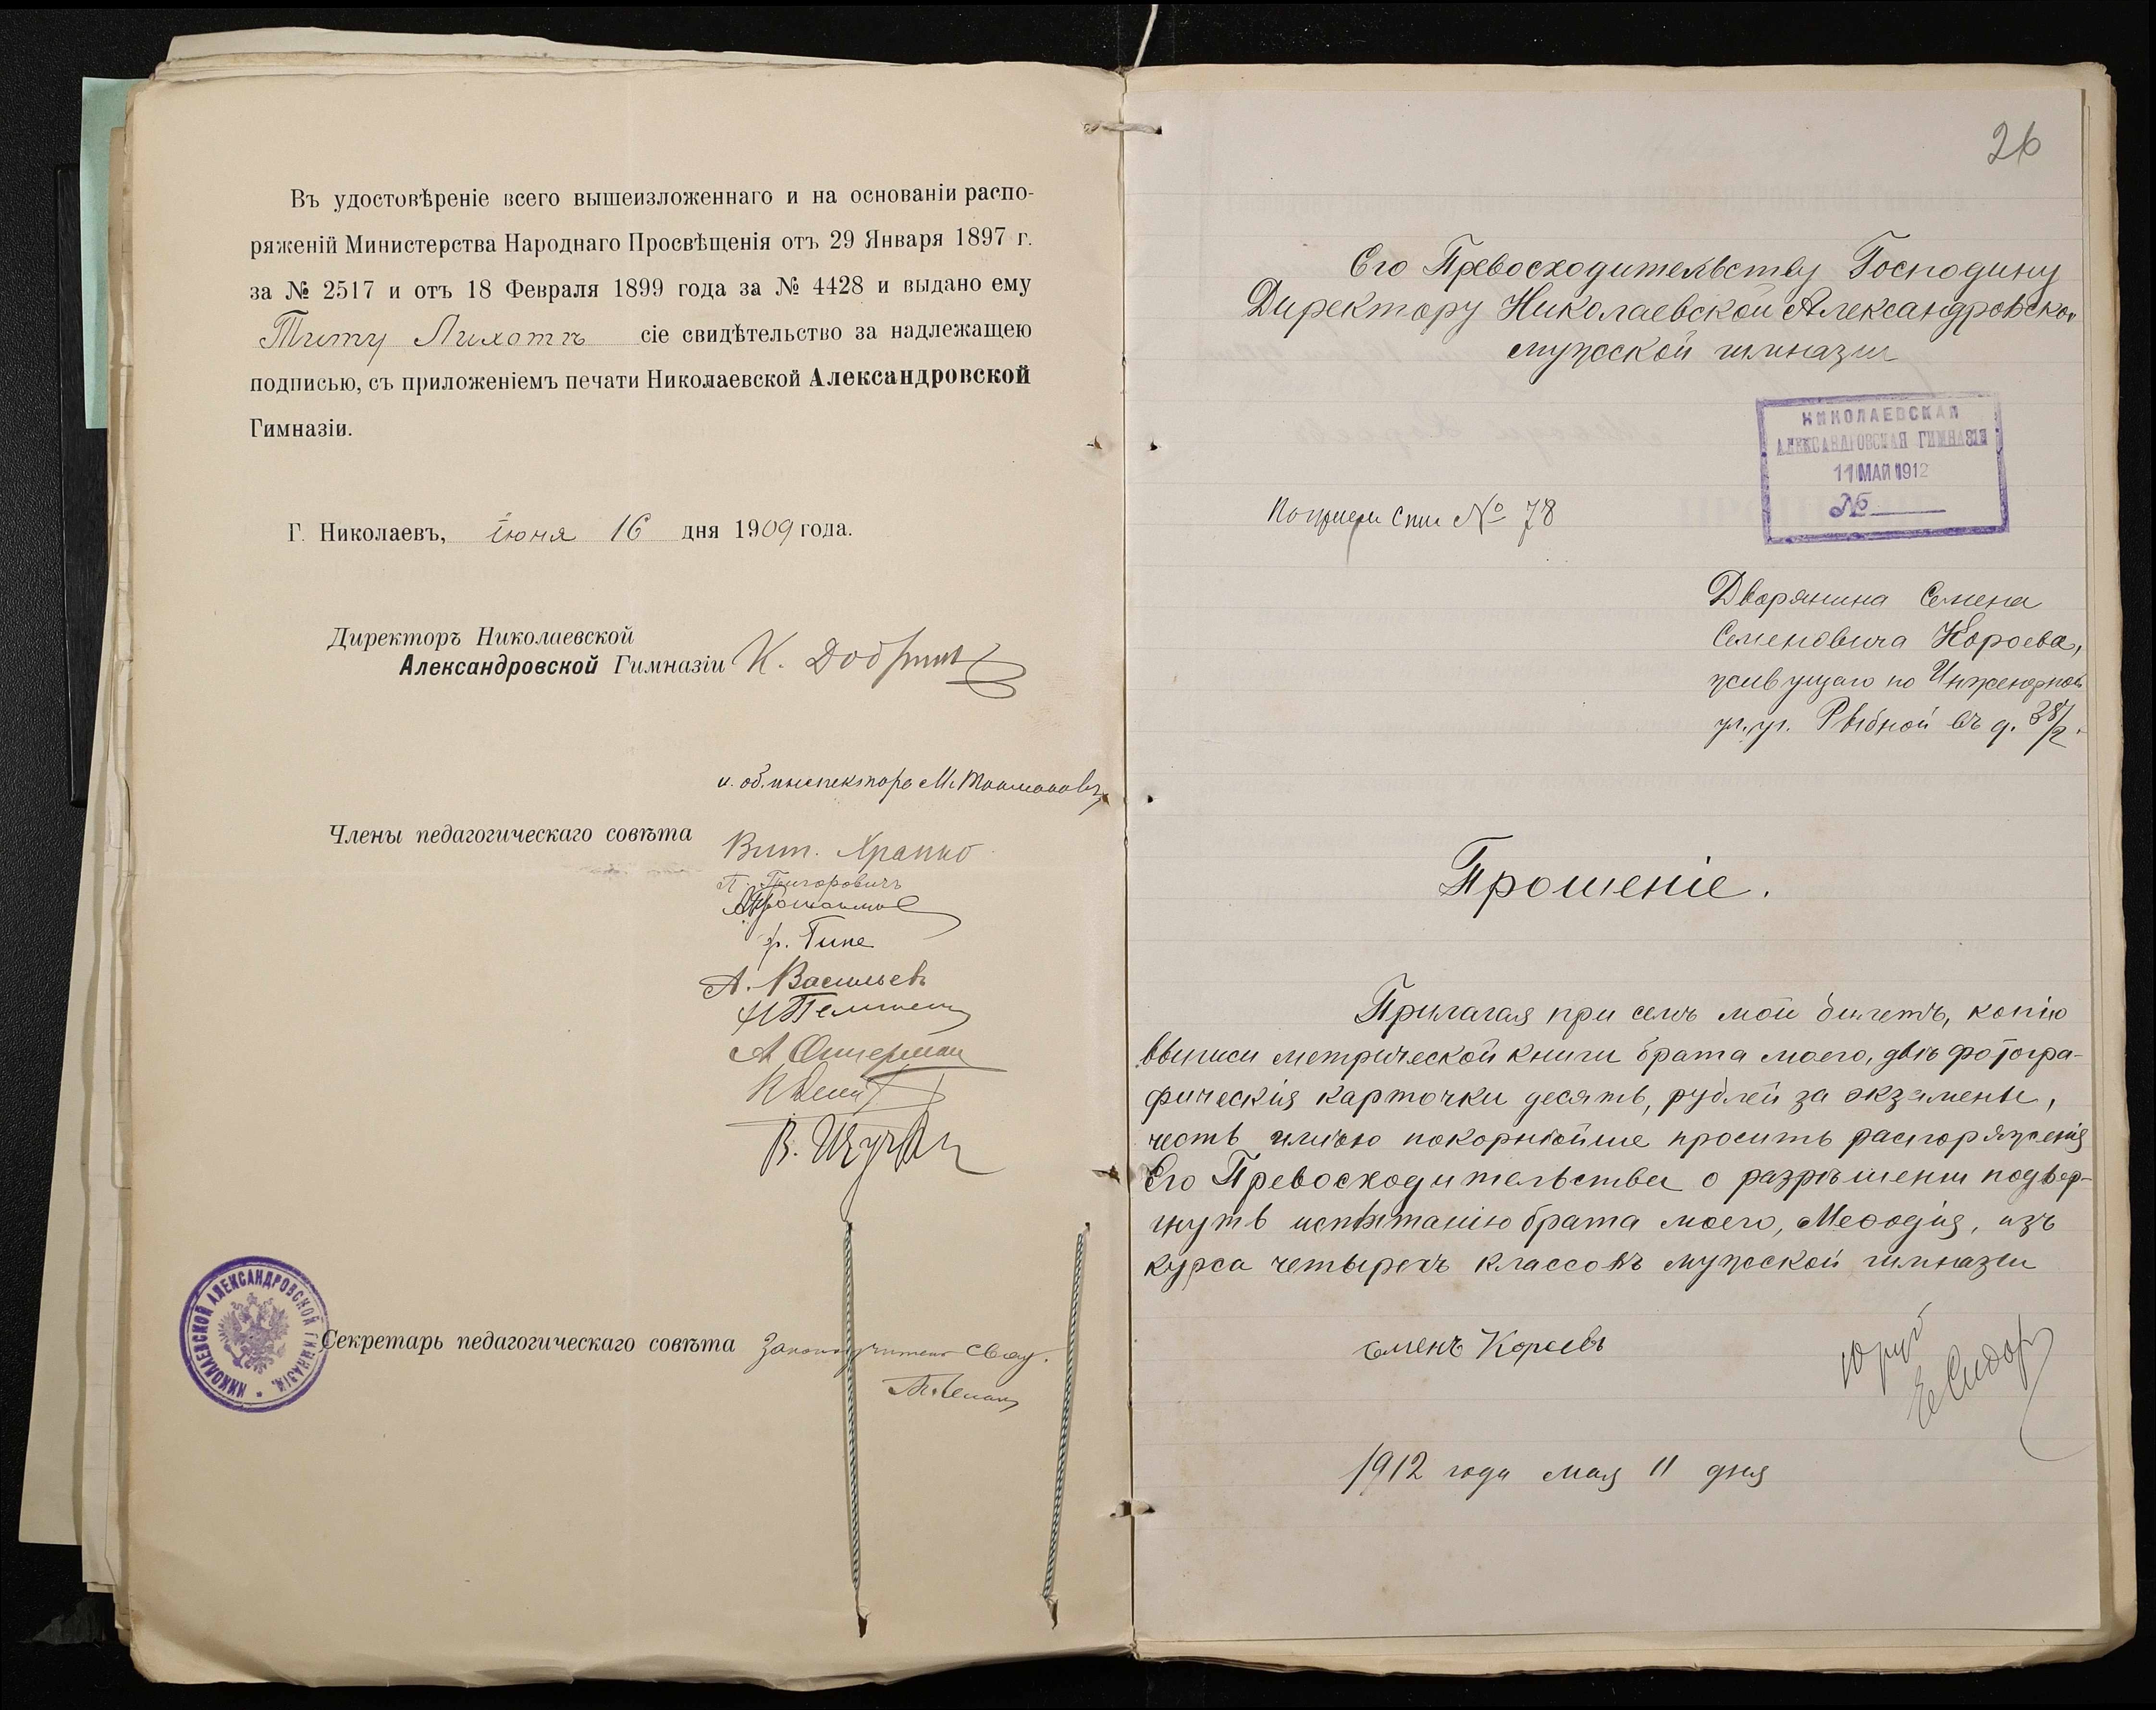 Въ удостовѣреніе всего вышеизложеннаго и на основаніи распо-
ряженій Министерства Народнаго Просвѣщенія отъ 29 Января 1897 г.
за № 2517 и отъ 18 Февраля 1899 года за № 4428 и выдано ему
Титу Лихоттъ сіе свидѣтельство за надлежащею
подписью, съ приложеніемъ печати Николаевской Александровской
Гимназіи.
Г. Николаевъ, іюня 16 дня 1909 года.
Директоръ Николаевской
Александровской Гимназіи К.
и. об. инспектора М.
Члены педагогическаго совѣта
Вит. Храпко
П. Григоровичъ
Ф. Гипе
А. Васильевъ
НИКОЛАЕВСКОЙ АЛЕКСАНДРОВСКОЙ ГИМНАЗІИ
Секретарь педагогическаго совѣта законоучитель свящ.
26
Его Превосходительству Господину
Директору Николаевской Александровской
мужской гимназіи
НИКОЛАЕВСКАЯ
АЛЕКСАНДРОВСКАЯ ГИМНАЗІЯ
11 МАЙ 1912
№
№ 78
Дворянина Семена
Семеновича Короева,
живущаго по Инженерной
ул. уг. Рыбной въ д. 38/2.
Прошеніе.
Прилагая при семъ мой билетъ, копію
выписи метрической книги брата моего, двѣ фотогра-
фическія карточки десять, рублей за экзамены,
честь имѣю покорнѣйше просить распоряженія
Его Превосходительства о разрѣшеніи подвер-
гнуть испытанію брата моего, Меѳодія, изъ
курса четырехъ классовъ мужской гимназіи
Семенъ Короевъ
10 руб
1912 года мая 11 дня